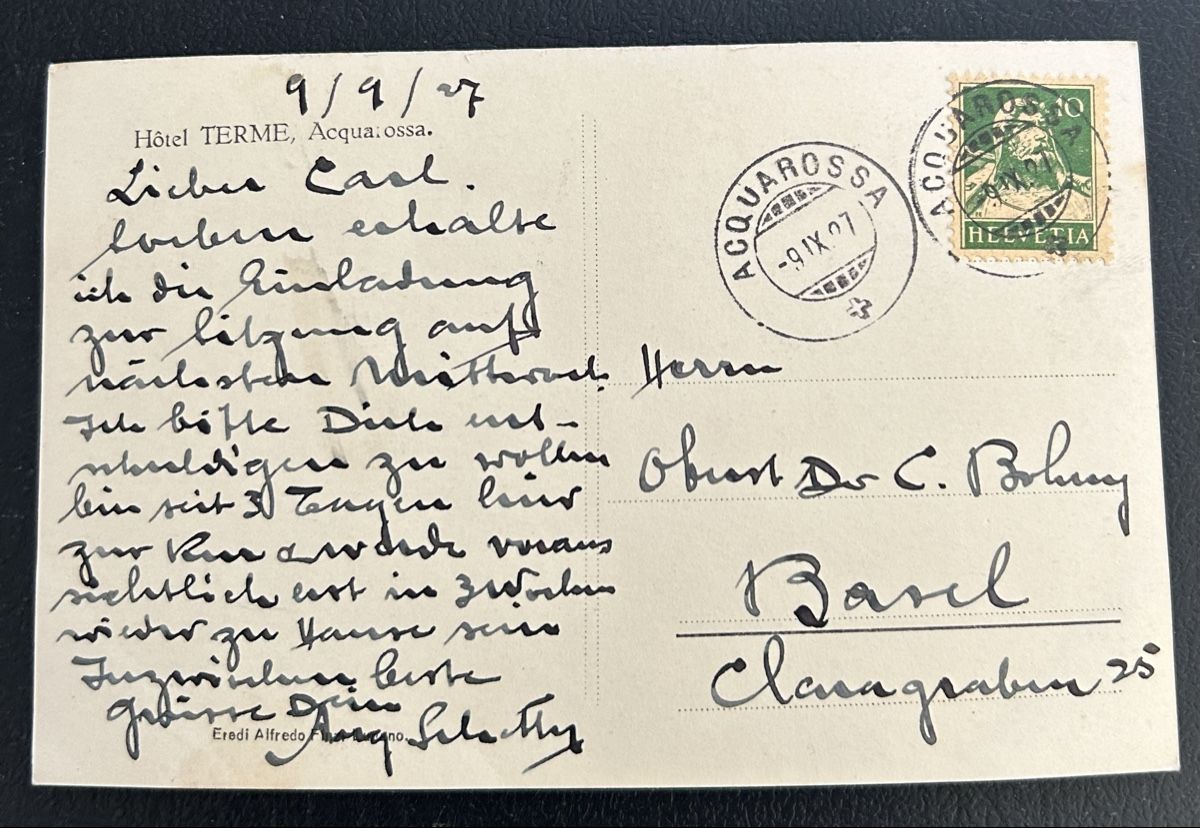 9/9/27
Hôtel TERME, Acquarossa.
Lieber Carl.
Soeben erhalte
ich die Einladung
zur Sitzung auf
nächsten Mittwoch.
Ich bitte Dich ent-
schuldigen zu wollen
bin seit 3 Tagen hier
zur Kur & werde voraus
sichtlich erst in 3 Wochen
wieder zu Hause sein
Inzwischen beste
Grüsse Dein
Eredi Alfredo Finzi Lugano.
ACQUAROSSA
-9.IX.27
ACQUAROSSA
-9.IX.27
10
HELVETIA
Herrn
Oberst Dr C.
Basel
Claragraben 25